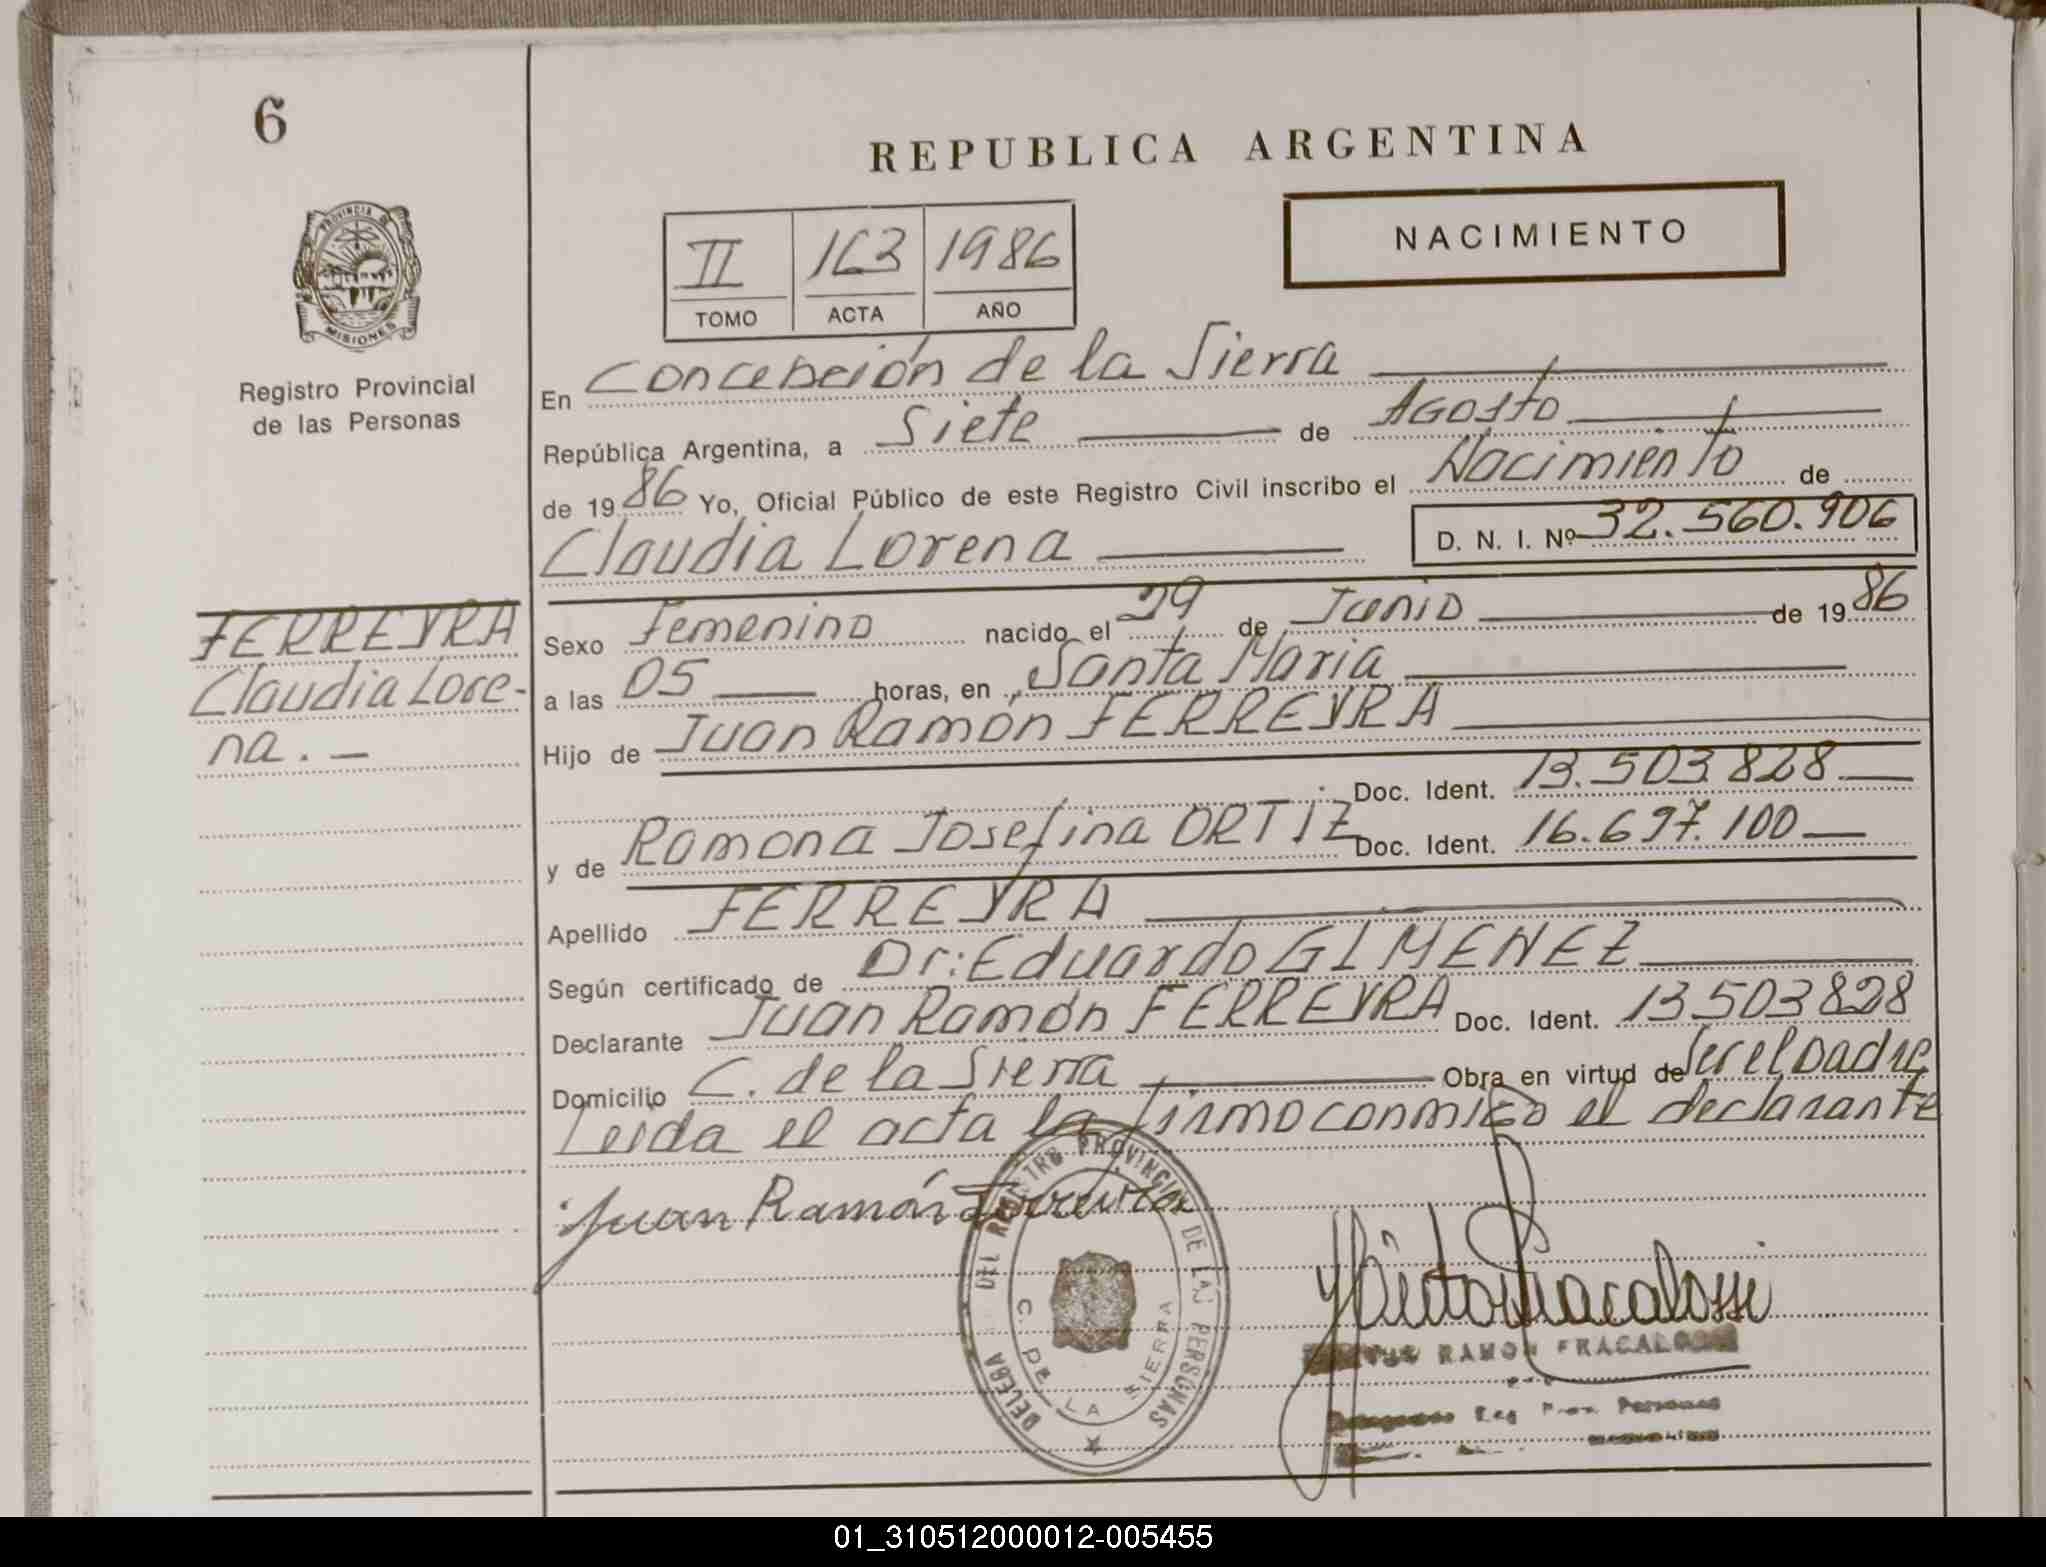 6
REPUBLICA ARGENTINA
PROVINCIA DE
MISIONES
Registro Provincial
de las Personas
II 163 1986
TOMO ACTA AÑO
NACIMIENTO
En Concepción de la Sierra
República Argentina, a Siete de Agosto
de 1986 Yo, Oficial Público de este Registro Civil inscribo el Nacimiento de
Claudia Lorena D. N. I. Nº 32.560.906
FERREYRA
Claudia Lore-
na. —
Sexo Femenino nacido el 29 de Junio de 1986
a las 05 horas, en Santa Maria
Hijo de Juan Ramón FERREYRA
Doc. Ident. 13.503.828
y de Ramona Josefina ORTIZ Doc. Ident. 16.697.100
Apellido FERREYRA
Según certificado de Dr: Eduardo GIMENEZ
Declarante Juan Ramón FERREYRA Doc. Ident. 13503828
Domicilio C. de la Sierra Obra en virtud de Ser el Padre
Leida el acta la firmo conmigo el declarante
Juan Ramón Ferreyra
DEL REGISTRO PROVINCIAL DE LAS PERSONAS
C. DE LA SIERRA
RAMON FRACALOSSI
Reg Prov. Personas
01_310512000012-005455